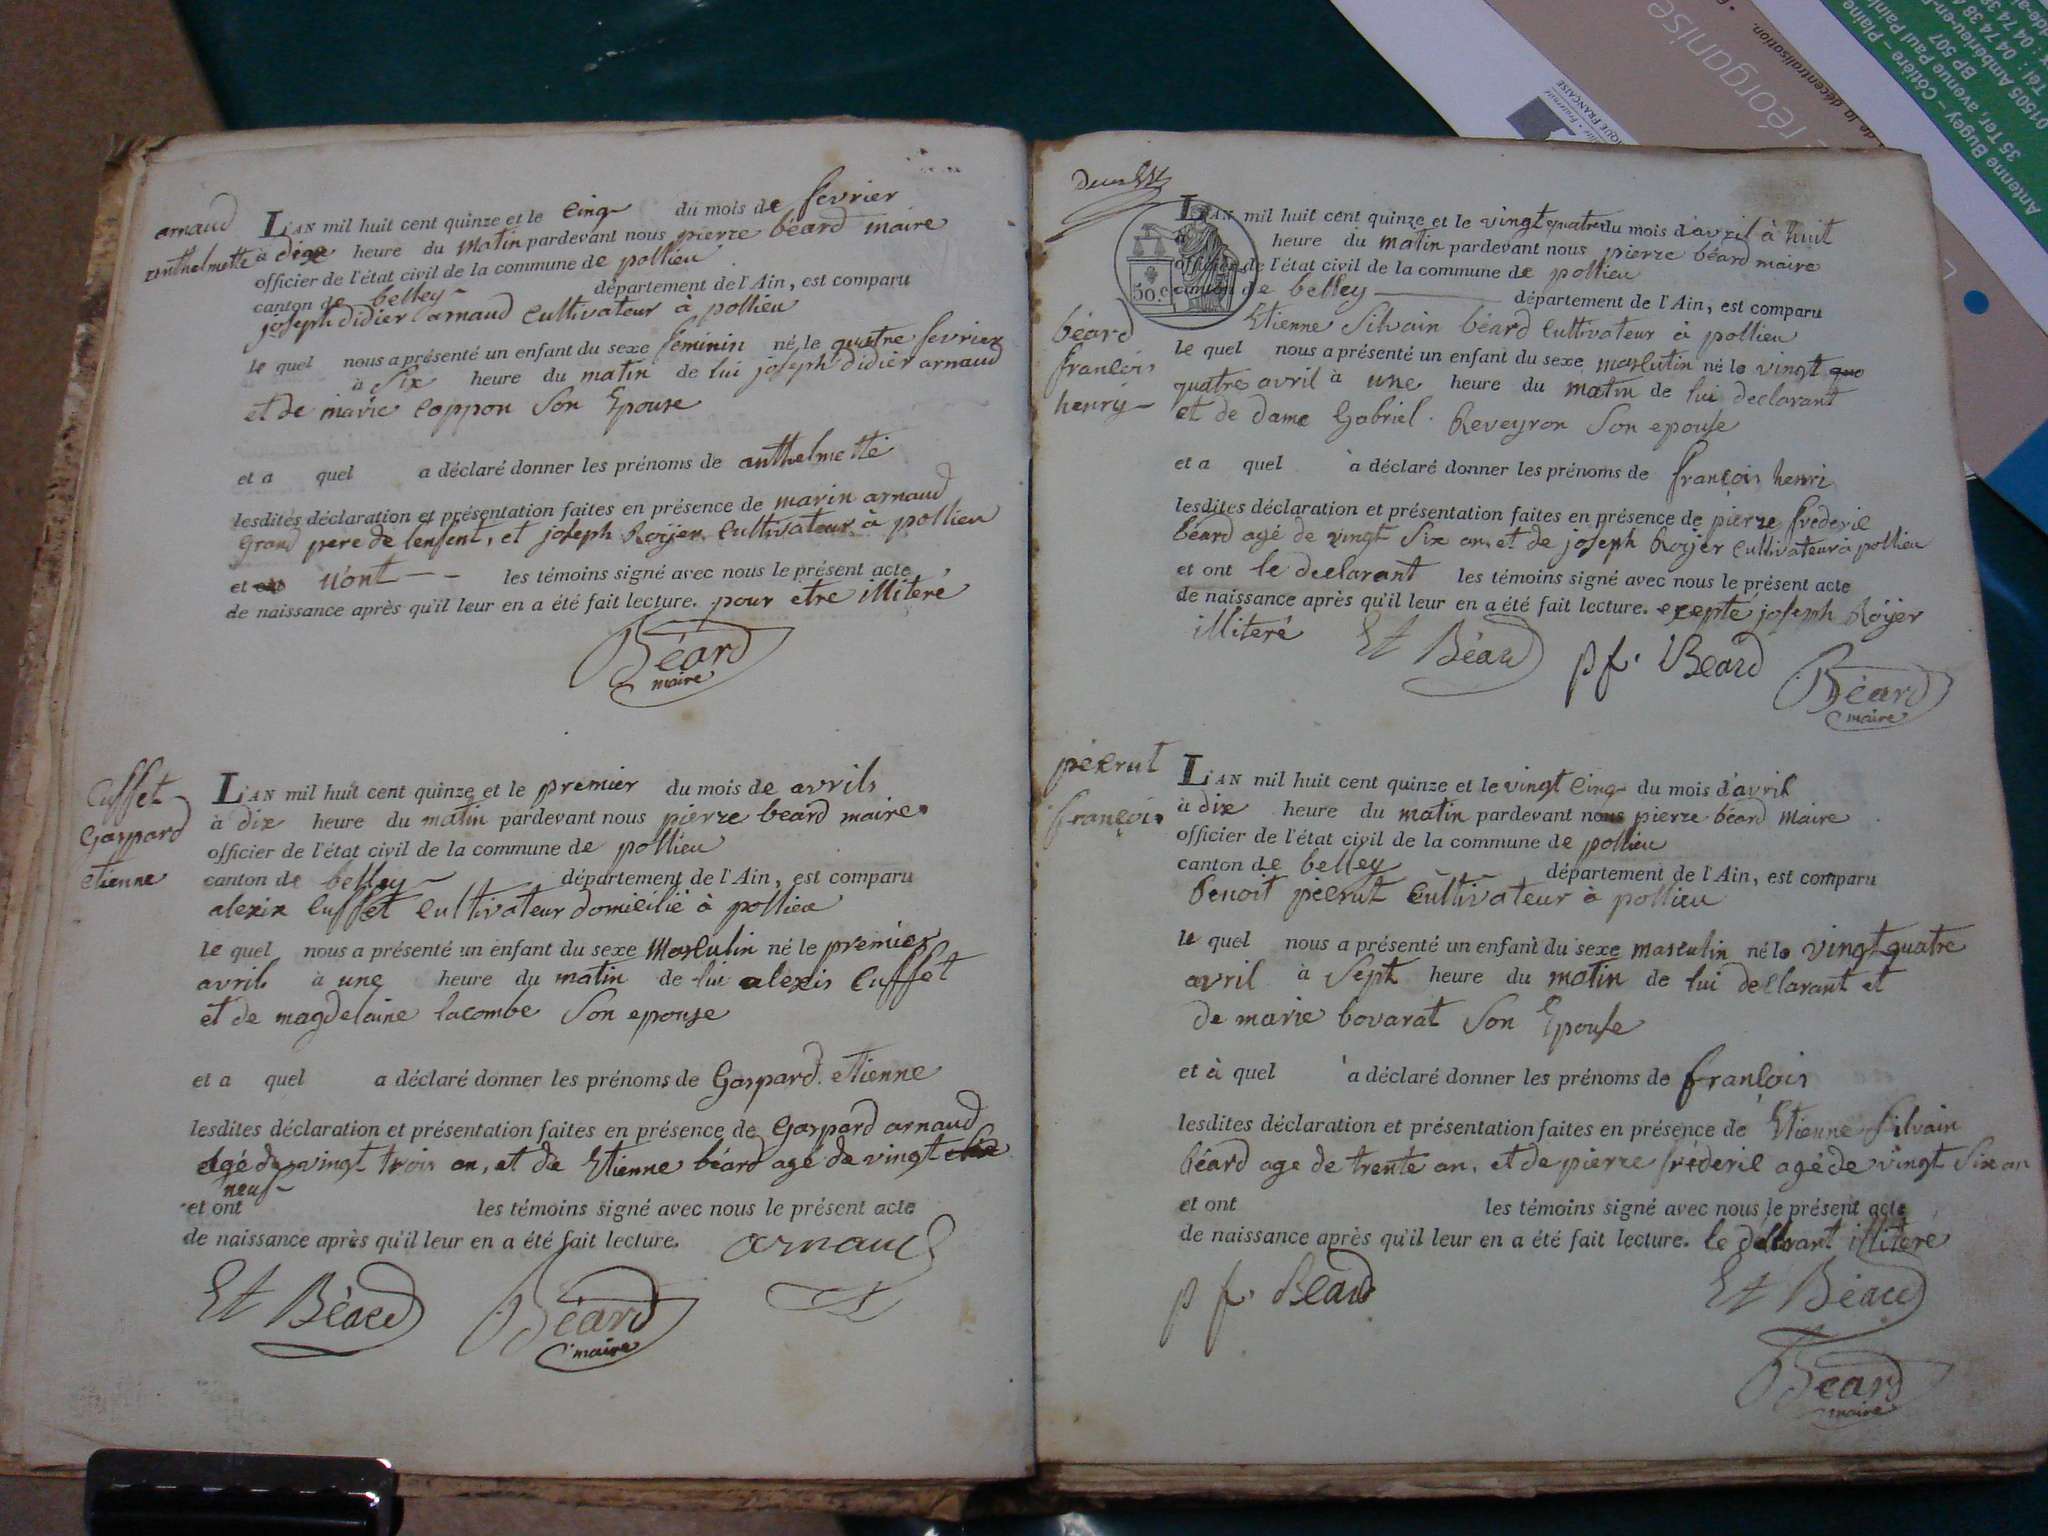 arnaud
anthelmette
L'AN mil huit cent quinze et le cinq du mois de fevrier
à dixe heure du matin pardevant nous pierre béard maire
officier de l'état civil de la commune de pollieu
canton de belley département de l'Ain, est comparu
joseph didier arnaud cultivateur à pollieu
le quel nous a présenté un enfant du sexe féminin né le quatre fevrier
à six heure du matin de lui joseph didier arnaud
et de marie coppon son Epouse
et a quel a déclaré donner les prénoms de anthelmette
lesdites déclaration et présentation faites en présence de marin arnaud
grand pere de lenfent, et joseph Royer cultivateur à pollieu
et ont n'ont les témoins signé avec nous le présent acte
de naissance après qu'il leur en a été fait lecture. pour etre illiteré
Béard
maire
Cuffet
Gaspard
etienne
L'AN mil huit cent quinze et le premier du mois de avril
à dix heure du matin pardevant nous pierre beard maire
officier de l'état civil de la commune de pollieu
canton de belley département de l'Ain, est comparu
alexix Cuffet cultivateur domicilié à pollieu
le quel nous a présenté un enfant du sexe Masculin né le premier
avril à une heure du matin de lui alexis Cuffet
et de magdelaine lacombe son epouse
et a quel a déclaré donner les prénoms de Gaspard etienne
lesdites déclaration et présentation faites en présence de Gaspard arnaud
agé de vingt trois an, et de Etienne béard agé de vingt
neuf
et ont les témoins signé avec nous le présent acte
de naissance après qu'il leur en a été fait lecture. arnaud
Et Béard Béard
maire
L'AN mil huit cent quinze et le vingt quatre du mois d'avril à huit
heure du matin pardevant nous pierre béard maire
officier de l'état civil de la commune de pollieu
50.c
canton de belley département de l'Ain, est comparu
Etienne Silvain béard cultivateur à pollieu
béard
françois
henry
le quel nous a présenté un enfant du sexe masculin né le vingt que
quatre avril à une heure du matin de lui declarant
et de dame Gabriel Reveyron son epouse
et a quel à déclaré donner les prénoms de françois henri
lesdites déclaration et présentation faites en présence de pierre frederic
béard agé de vingt six an, et de joseph Royer cultivateur à pollieu
et ont le declarant les témoins signé avec nous le présent acte
de naissance après qu'il leur en a été fait lecture. excepté joseph Royer
illiteré Et Béard pf. Beard Béard
maire
péerut
françois
L'AN mil huit cent quinze et le vingt cinq du mois d'avril
à dix heure du matin pardevant nous pierre béard maire
officier de l'état civil de la commune de pollieu
canton de belley département de l'Ain, est comparu
benoit péerut cultivateur à pollieu
le quel nous a présenté un enfant du sexe masculin né le vingt quatre
avril à sept heure du matin de lui declarant et
de marie bovarat son Epouse
et à quel à déclaré donner les prénoms de françois
lesdites déclaration et présentation faites en présence de Etienne Silvain
béard age de trente an, et de pierre fréderic agé de vingt six an
et ont les témoins signé avec nous le présent acte
de naissance après qu'il leur en a été fait lecture. le declarant illiteré
p f. Beard Et Béard
Béard
maire
réorganise
de la décentralisation.
Antenne Bugey – Côtière – Plaine
35 Ter, avenue Paul Pain
BP 507
01505 Ambérieu-en-
Tél : 04 74 38